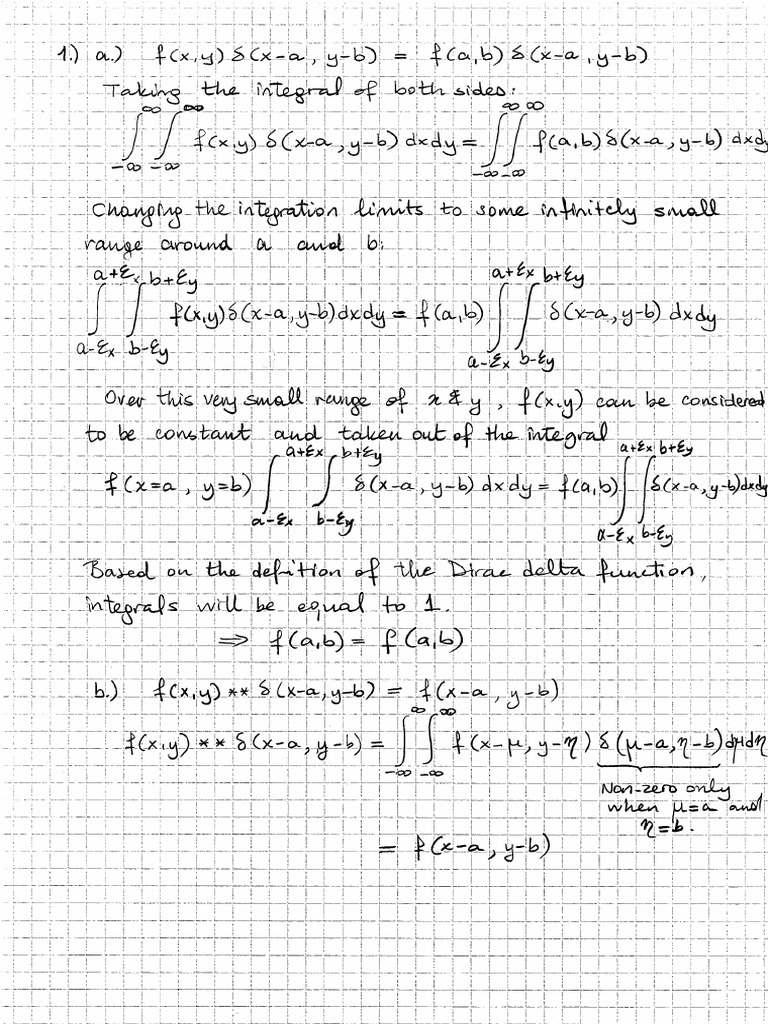 1.) a.) f(x,y) δ(x-a, y-b) = f(a,b) δ(x-a, y-b)
Taking the integral of both sides:
∫_{-∞}^{∞} ∫_{-∞}^{∞} f(x,y) δ(x-a, y-b) dxdy = ∫_{-∞}^{∞} ∫_{-∞}^{∞} f(a,b) δ(x-a, y-b) dxdy
Changing the integration limits to some infinitely small
range around a and b:
∫_{a-εx}^{a+εx} ∫_{b-εy}^{b+εy} f(x,y) δ(x-a, y-b) dxdy = f(a,b) ∫_{a-εx}^{a+εx} ∫_{b-εy}^{b+εy} δ(x-a, y-b) dxdy
Over this very small range of x & y, f(x,y) can be considered
to be constant and taken out of the integral
f(x=a, y=b) ∫_{a-εx}^{a+εx} ∫_{b-εy}^{b+εy} δ(x-a, y-b) dxdy = f(a,b) ∫_{a-εx}^{a+εx} ∫_{b-εy}^{b+εy} δ(x-a, y-b) dxdy
Based on the defition of the Dirac delta function,
integrals will be equal to 1.
⇒ f(a,b) = f(a,b)
b.) f(x,y) ** δ(x-a, y-b) = f(x-a, y-b)
f(x,y) ** δ(x-a, y-b) = ∫_{-∞}^{∞} ∫_{-∞}^{∞} f(x-μ, y-η) δ(μ-a, η-b) dμdη
Non-zero only
when μ=a and
η=b.
= f(x-a, y-b)